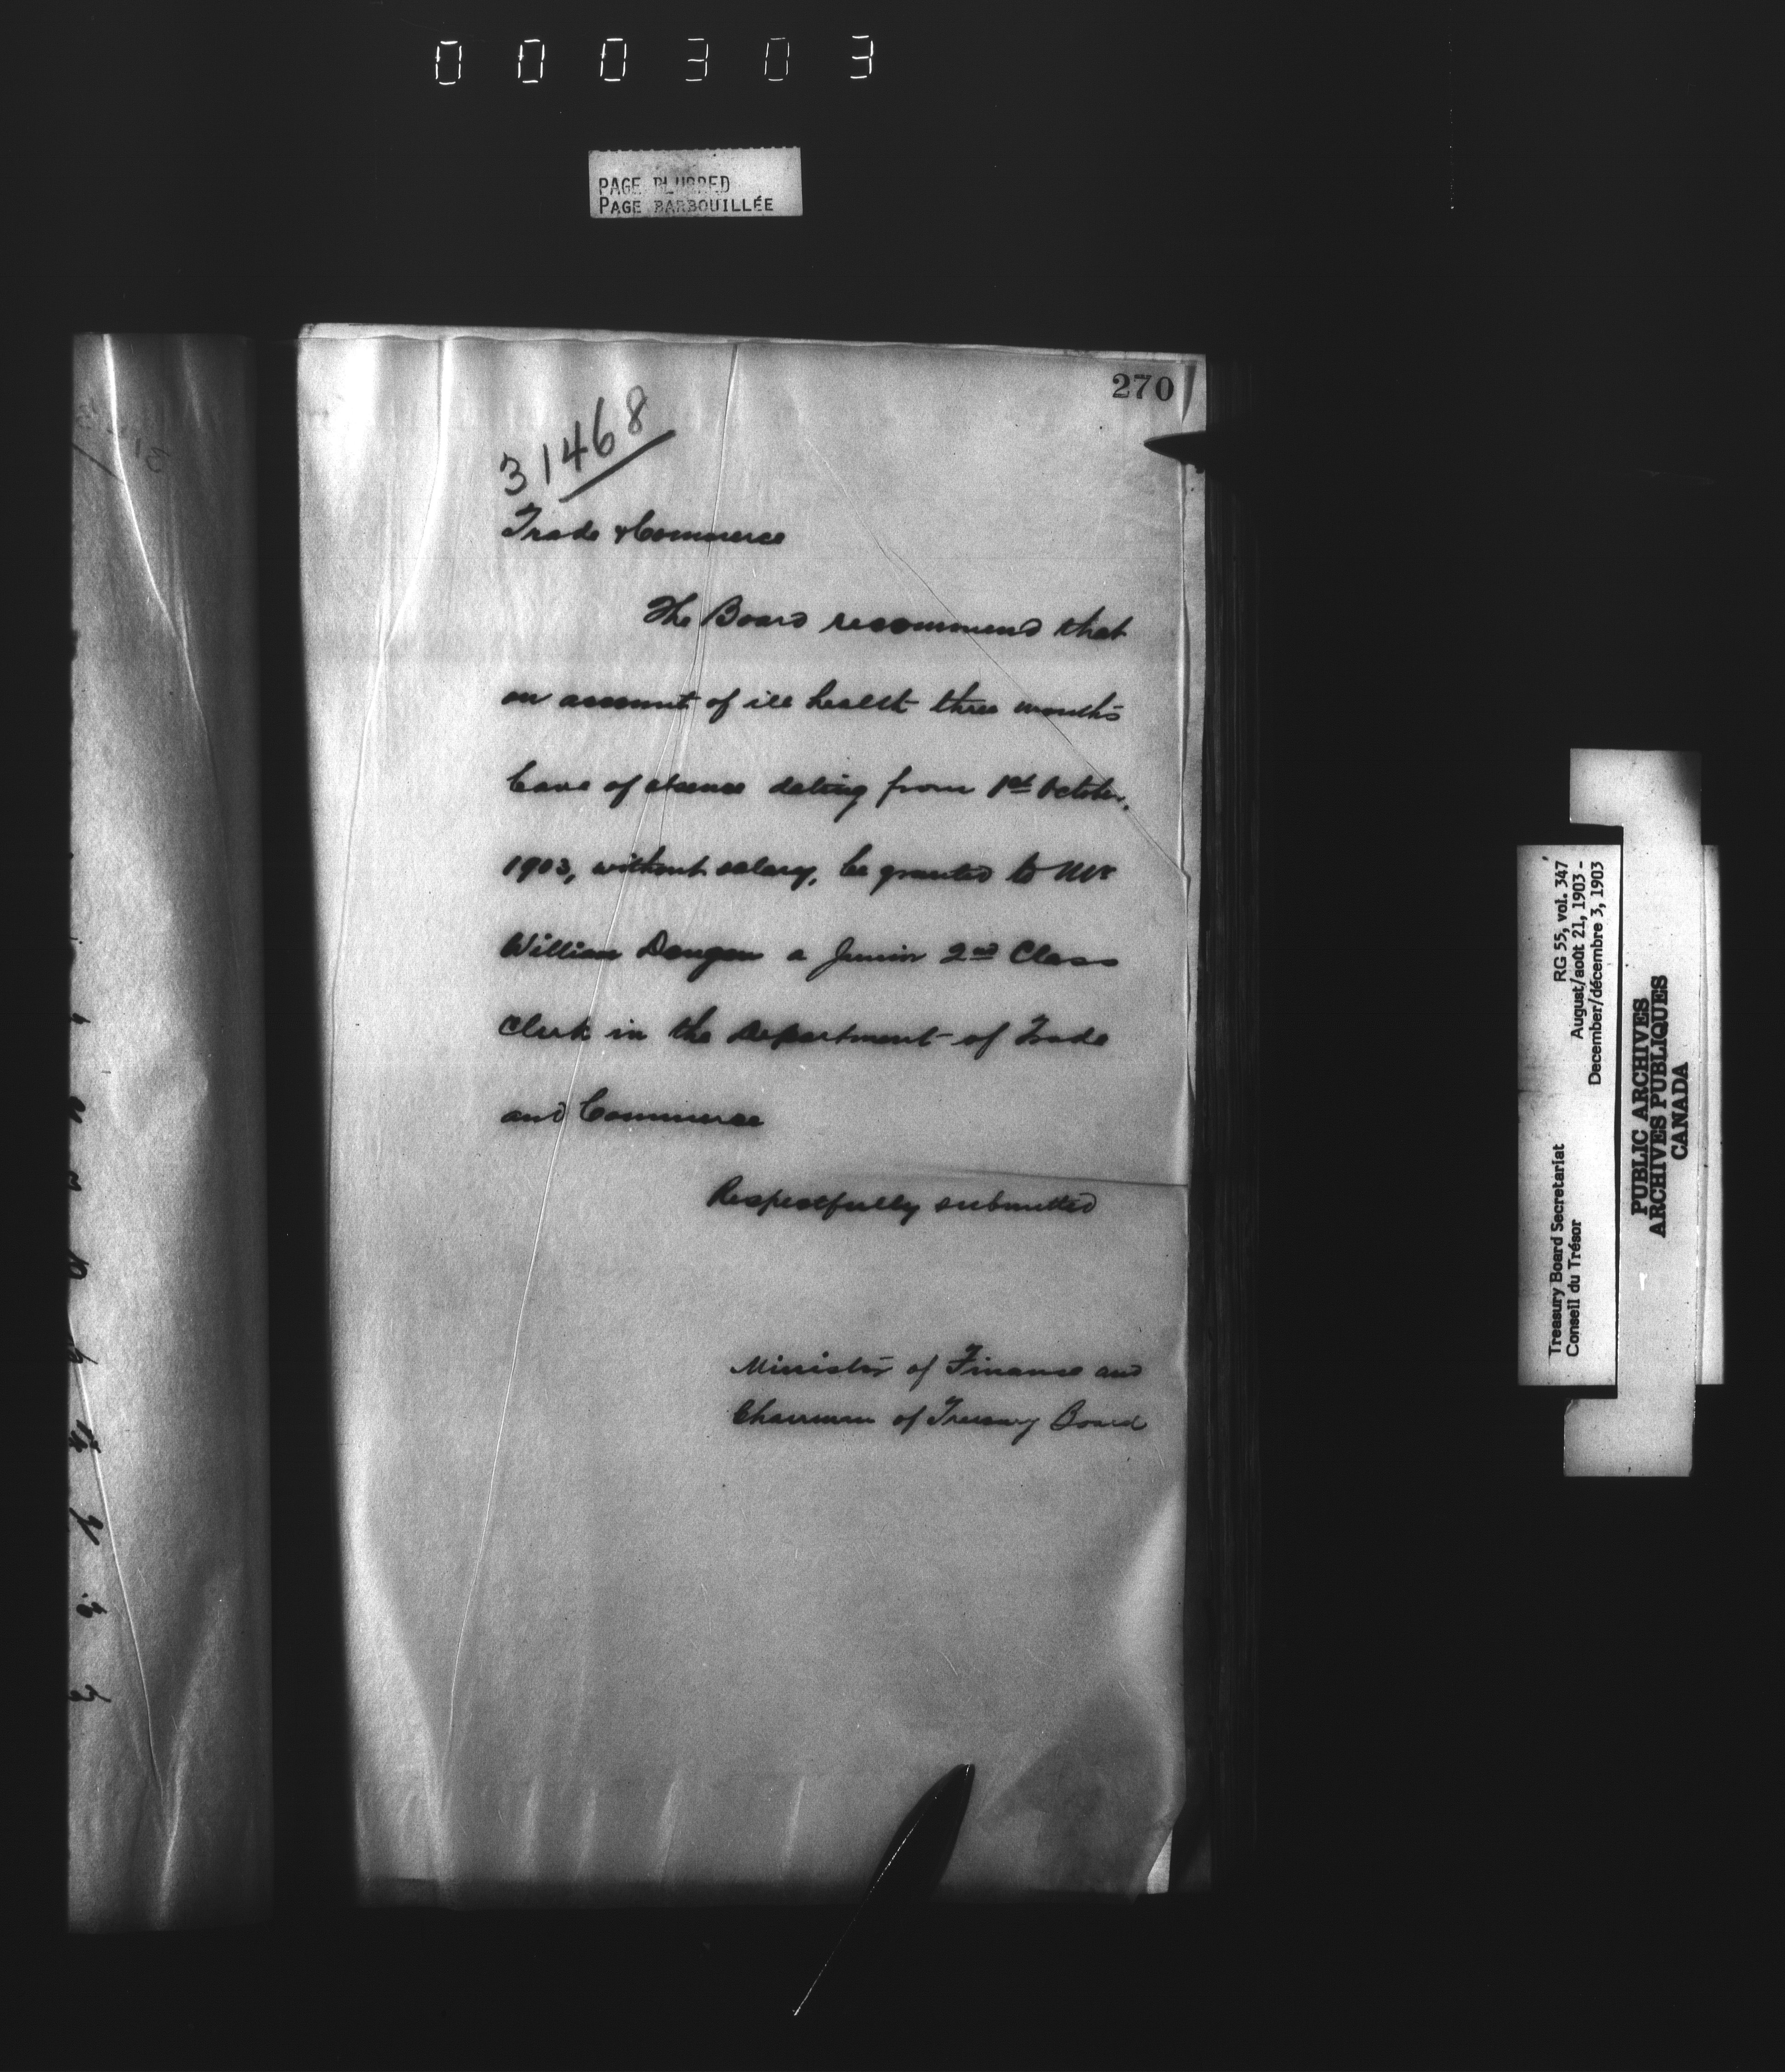 000303
PAGE BLURRED
PAGE BARBOUILLÉE
270
31468
Trade & Commerce
The Board recommend that
on account of ill health three months
leave of absence dating from 1st October,
1903, without salary, be granted to Mr
William a Junior 2nd Class
Clerk in the Department of Trade
and Commerce
Respectfully submitted
Minister of Finance and
Chairman of Treasury Board
Treasury Board Secretariat
Conseil du Trésor
RG 55, vol. 347
August/août 21, 1903 -
December/décembre 3, 1903
PUBLIC ARCHIVES
ARCHIVES PUBLIQUES
CANADA